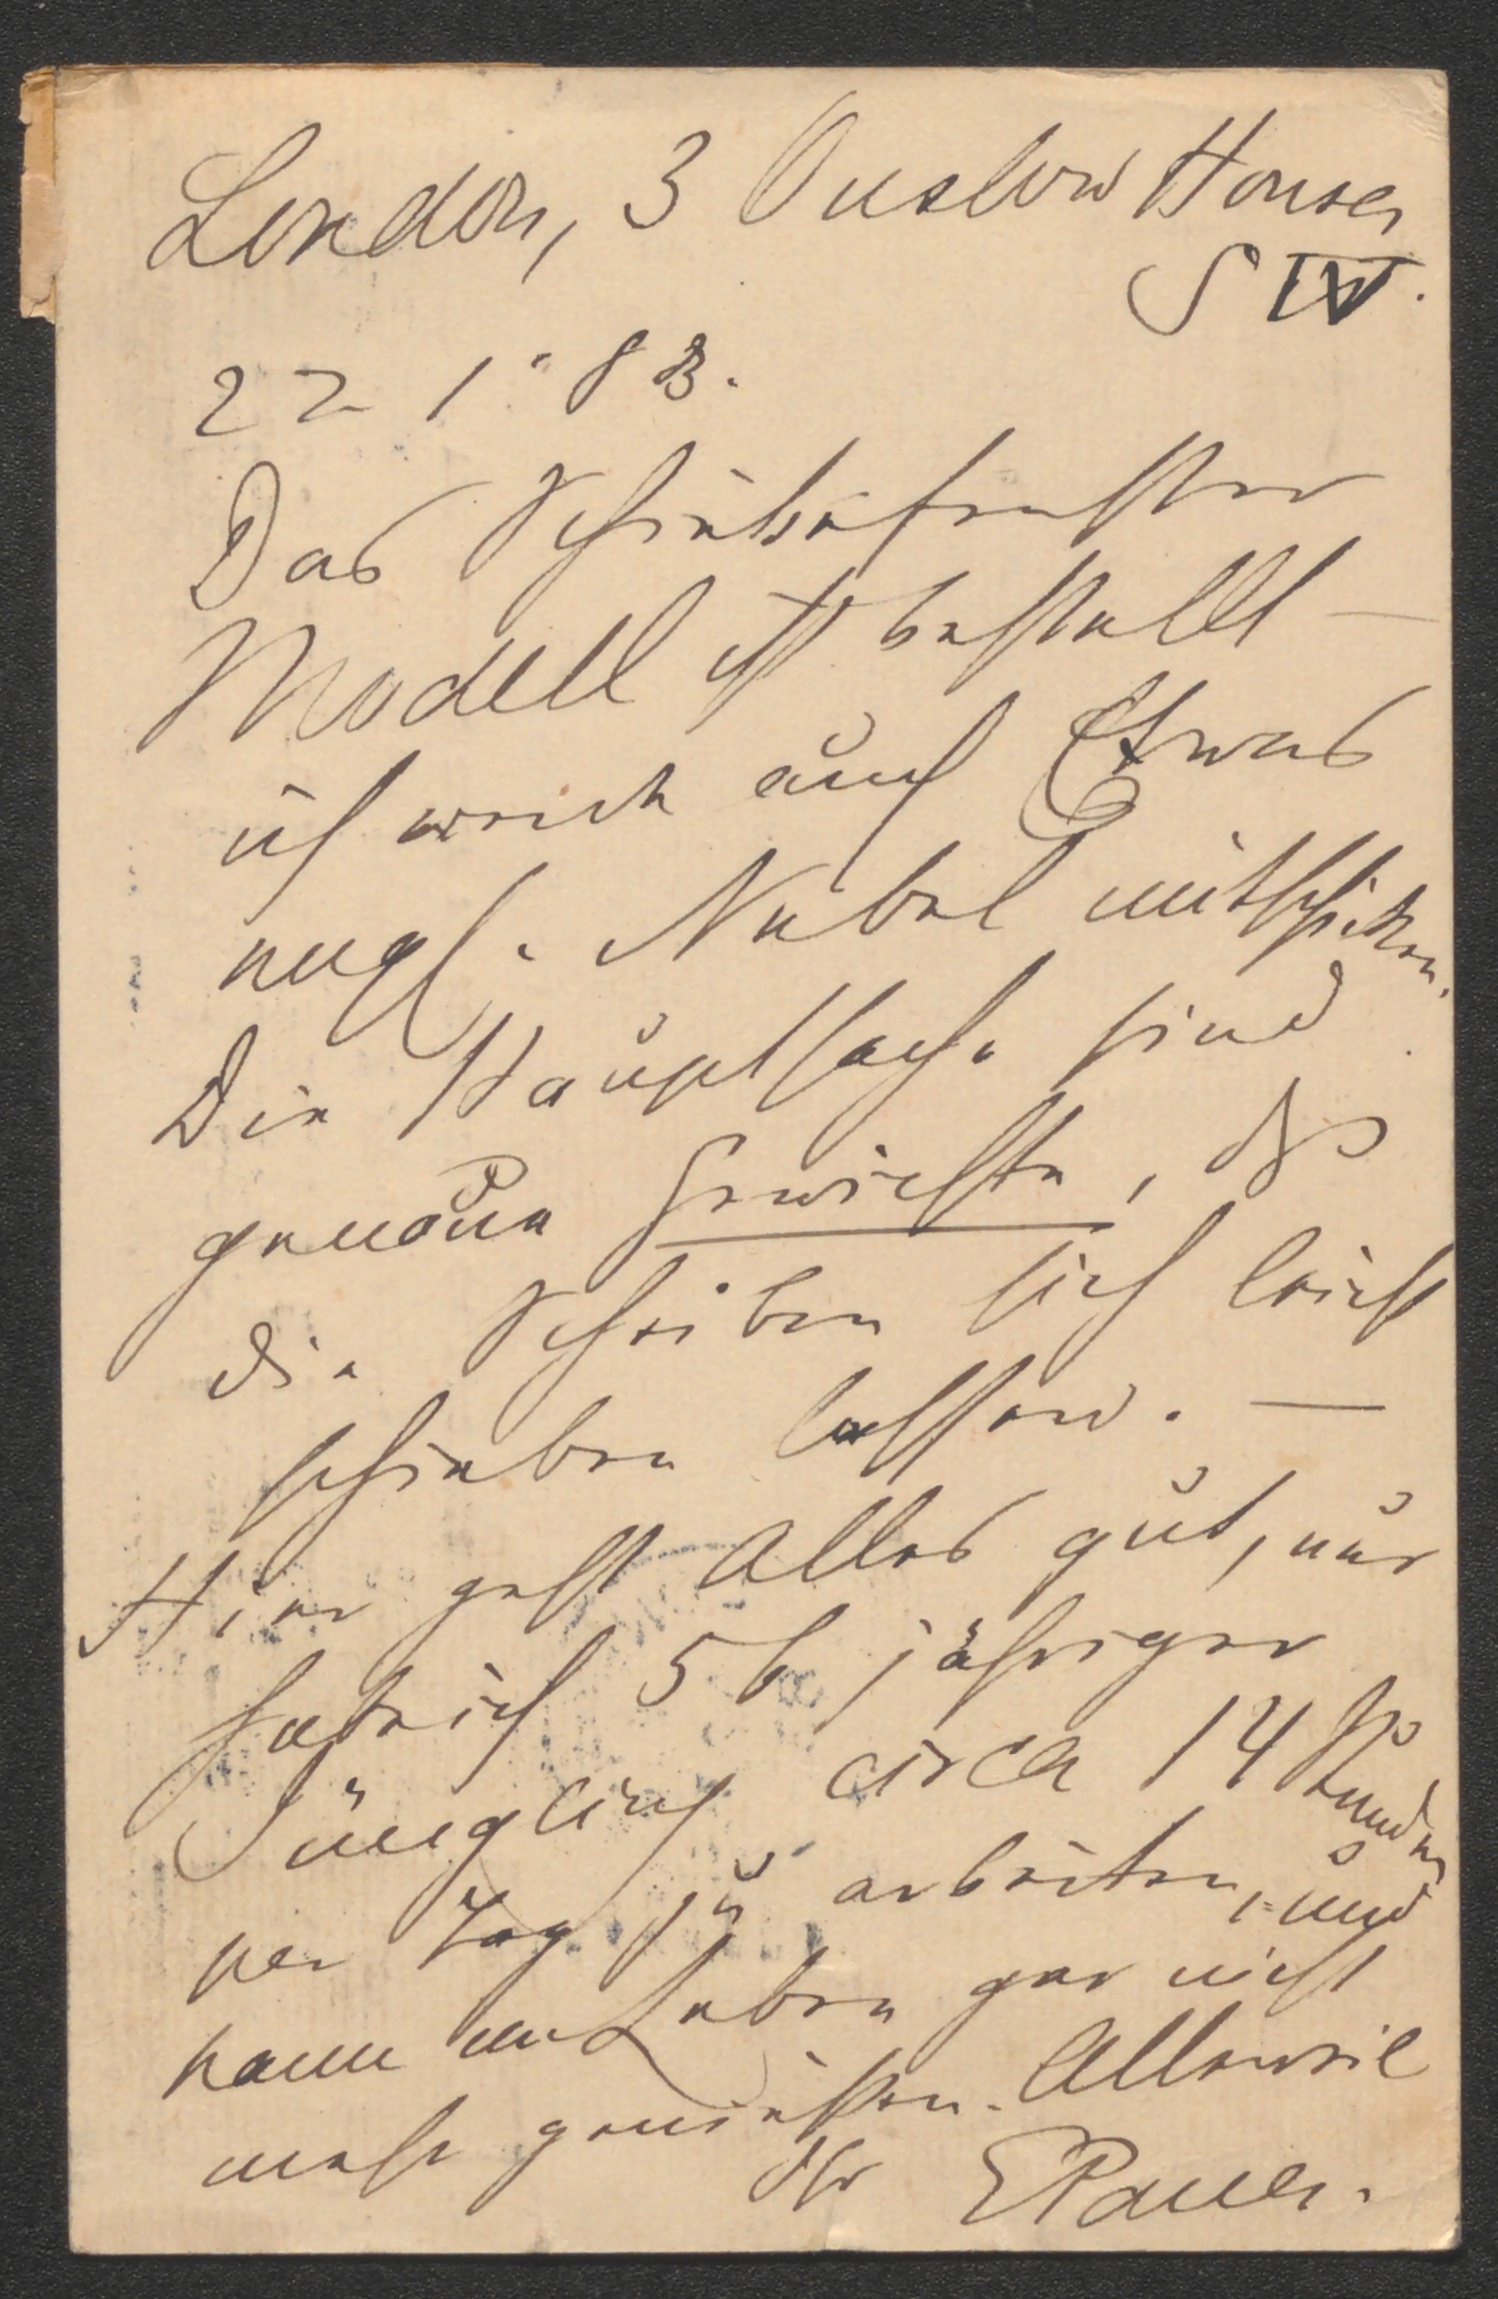 London, 3 Onslow Houses
SW.
22 1. 83.
Das Schiebefenster
Modell ist bestellt —
ich werde auch Etwas
engl. Nebel mitschicken.
Die Hauptsache sind
genaue Gewichte, daß
die Scheiben sich leicht
schieben lassen. —
Hier geht Alles gut, nur
habe ich 56 jähriger
Jüngling circa 14 Stunden
per Tag zu arbeiten, und
kann Leben gar nicht
mehr genießen. Alleweil
Ihr EPauer.